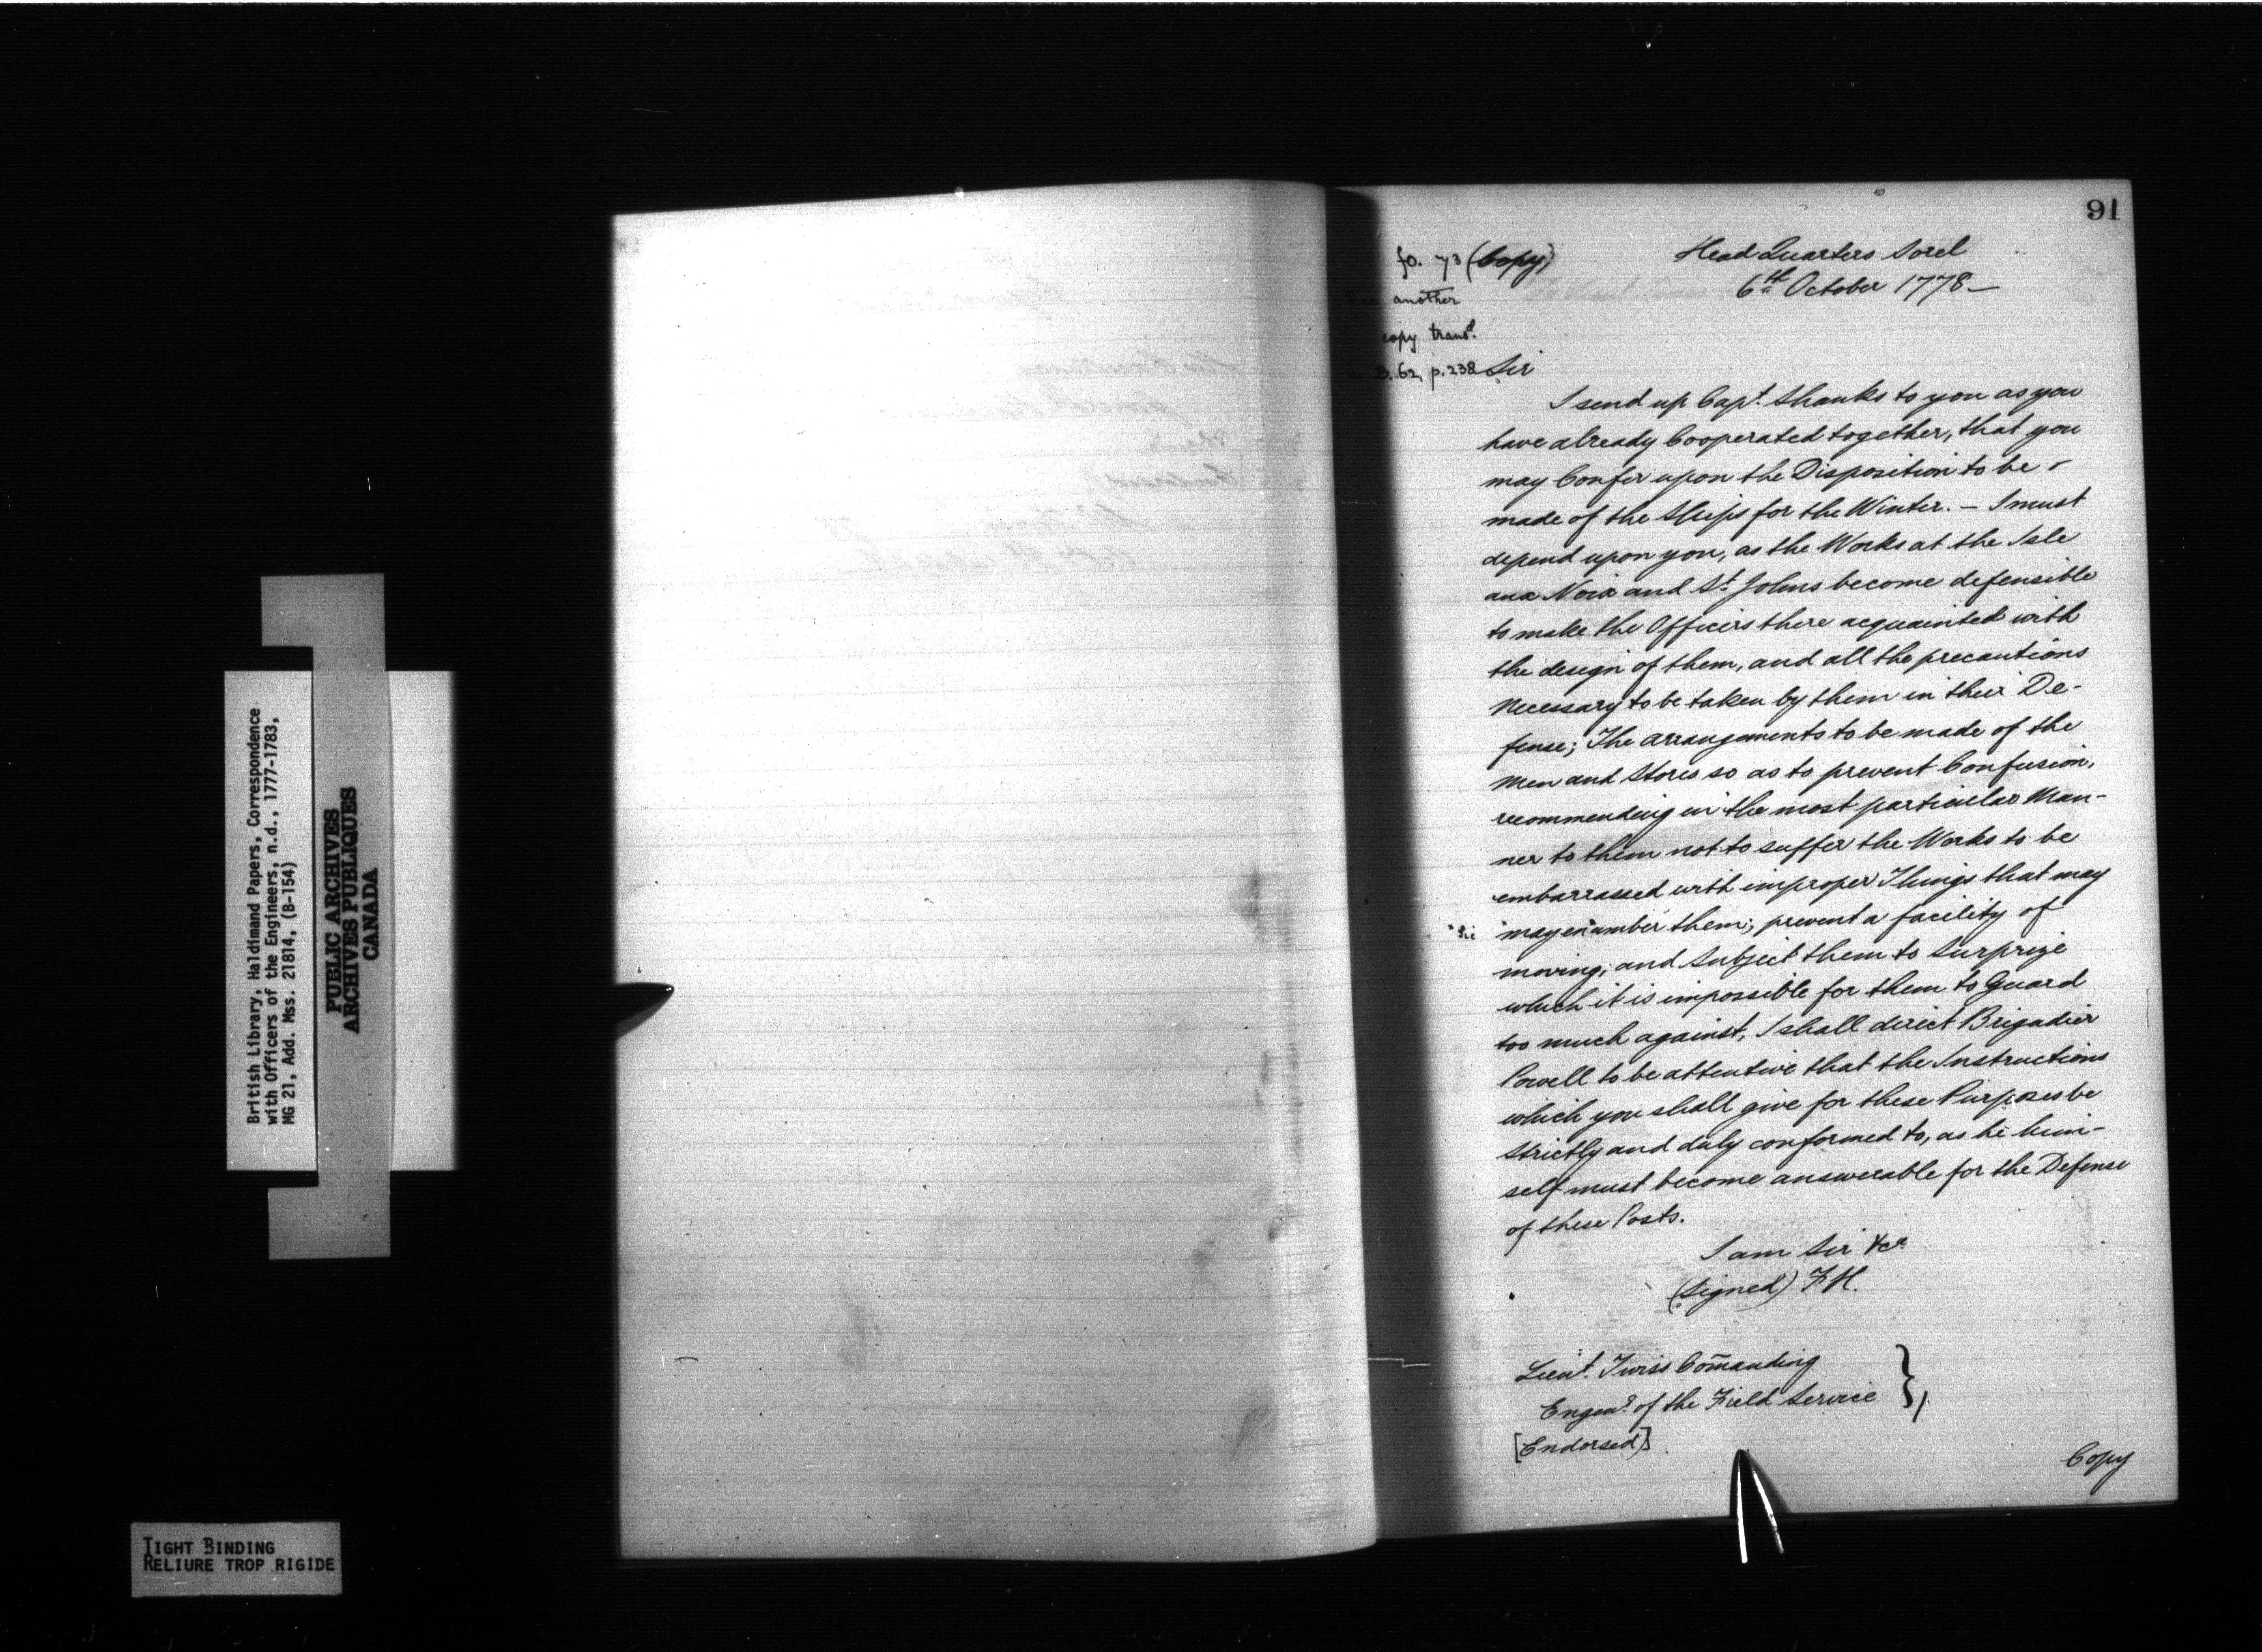 British Library, Haldimand Papers, Correspondence
with Officers of the Engineers, n.d., 1777-1783,
MG 21, Add. Mss. 21814, (B-154)
PUBLIC ARCHIVES
ARCHIVES PUBLIQUES
CANADA
TIGHT BINDING
RELIURE TROP RIGIDE
91
fo. 73 (Copy)
another
copy transd.
B.62, p.238
Head Quarters Sorel
6th October 1778—
Sir
I send up Capt. Shanks to you as you
have already Cooperated together, that you
may Confer upon the Disposition to be
made of the Ships for the Winter. — I must
depend upon you, as the Works at the Isle
aux Noix and St. Johns become defensible
to make the Officers there acquainted with
the design of them, and all the precautions
necessary to be taken by them in their De-
fense; The arrangements to be made of the
Men and Stores so as to prevent Confusion,
recommending in the most particular Man-
ner to them not to suffer the Works to be
embarrassed with improper Things that may
"Sic may en"umber them; prevent a facility of
moving; and Subject them to Surprize
which it is impossible for them to Guard
too much against, I shall direct Brigadier
Powell to be attentive that the Instructions
which you shall give for these Purposes be
strictly and duly conformed to, as he him-
self must become answerable for the Defense
of these Posts.
I am Sir &ca.
(Signed) F H.
Lieut. Twiss Com̄anding
Engenr. of the Field Service },
[Endorsed]
Copy